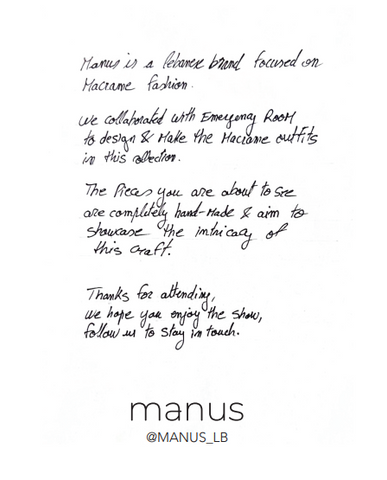 Manus is a lebanese brand focused on
Macrame fashion.
We collaborated with Emergency Room
to design & Make the Macrame outfits
in this collection.
The Pieces you are about to see
are completely hand-Made & aim to
showcase the intricacy of
this craft.
Thanks for attending,
we hope you enjoy the show,
follow us to stay in touch.
manus
@MANUS_LB